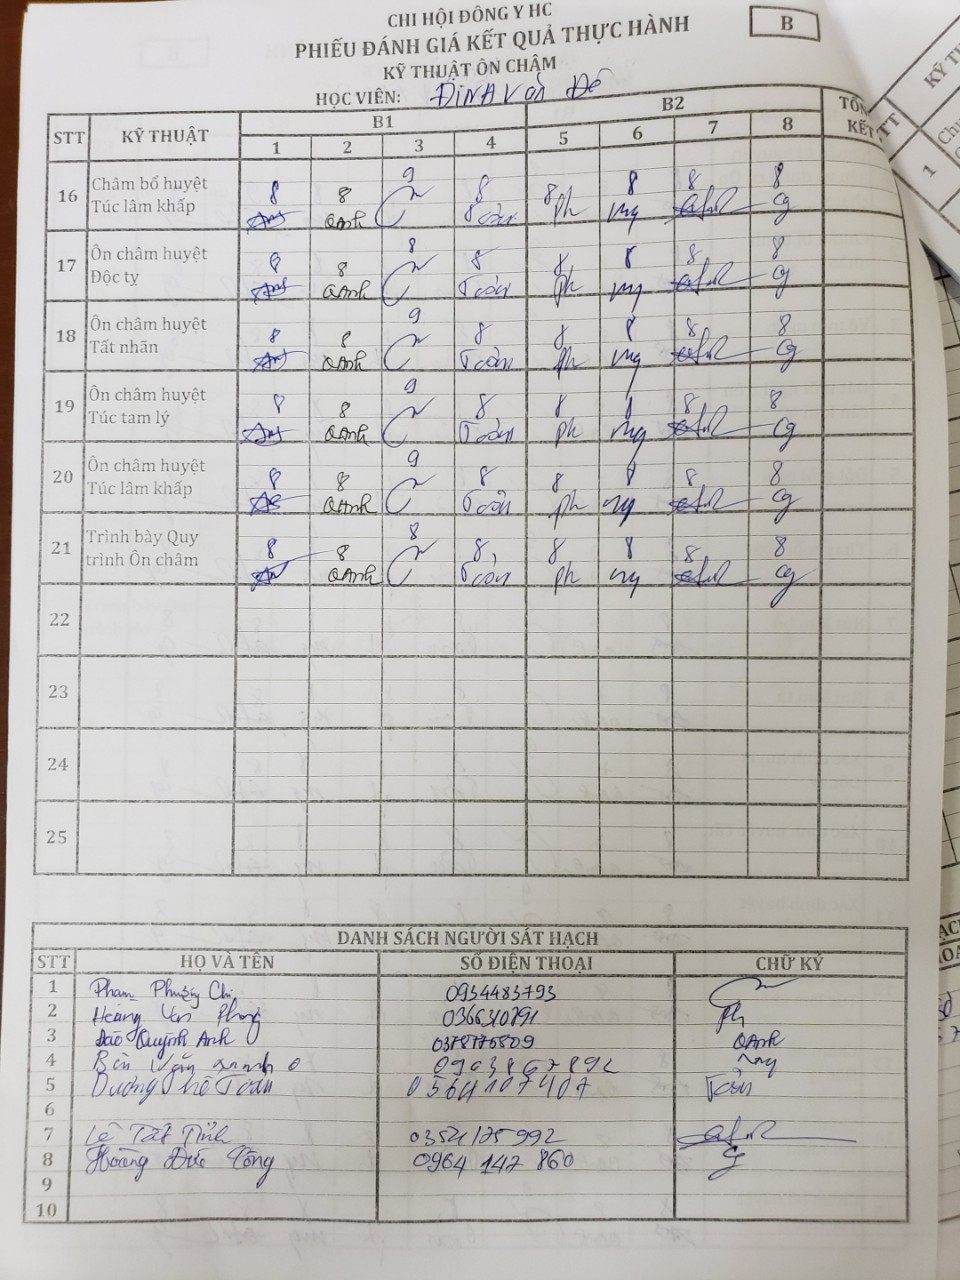 CHI HỘI ĐÔNG Y HC
B
PHIẾU ĐÁNH GIÁ KẾT QUẢ THỰC HÀNH
KỸ THUẬT ÔN CHÂM
HỌC VIÊN: ĐINH Văn Đô
STT KỸ THUẬT B1 B2 TỔNG KẾT
1 2 3 4 5 6 7 8
16 Châm bổ huyệt Túc lâm khấp 8 8 9 8 8 8 8 8
QAnh Toản Ph my cg
17 Ôn châm huyệt Độc tỵ 8 8 8 8 8 8 8 8
QAnh Toản Ph my cg
18 Ôn châm huyệt Tất nhãn 8 8 9 8 8 8 8 8
QAnh Toản Ph my cg
19 Ôn châm huyệt Túc tam lý 8 8 9 8 8 8 8 8
QAnh Toản Ph my cg
20 Ôn châm huyệt Túc lâm khấp 8 8 9 8 8 8 8 8
QAnh Toản Ph my cg
21 Trình bày Quy trình Ôn châm 8 8 8 8 8 8 8 8
QAnh Toản Ph my cg
22
23
24
25
DANH SÁCH NGƯỜI SÁT HẠCH
STT HỌ VÀ TÊN SỐ ĐIỆN THOẠI CHỮ KÝ
1 Phạm Phương Chi 0934483793
2 Hoàng Văn Phong Ph
3 Đào Quỳnh Anh QAnh
4 Văn 0903867892 my
5 Dương Thế Toản 0564107407 Toản
6
7 Lê Tất Tỉnh 0354175992
8 Hoàng Đức Công 0964 147 860
9
10